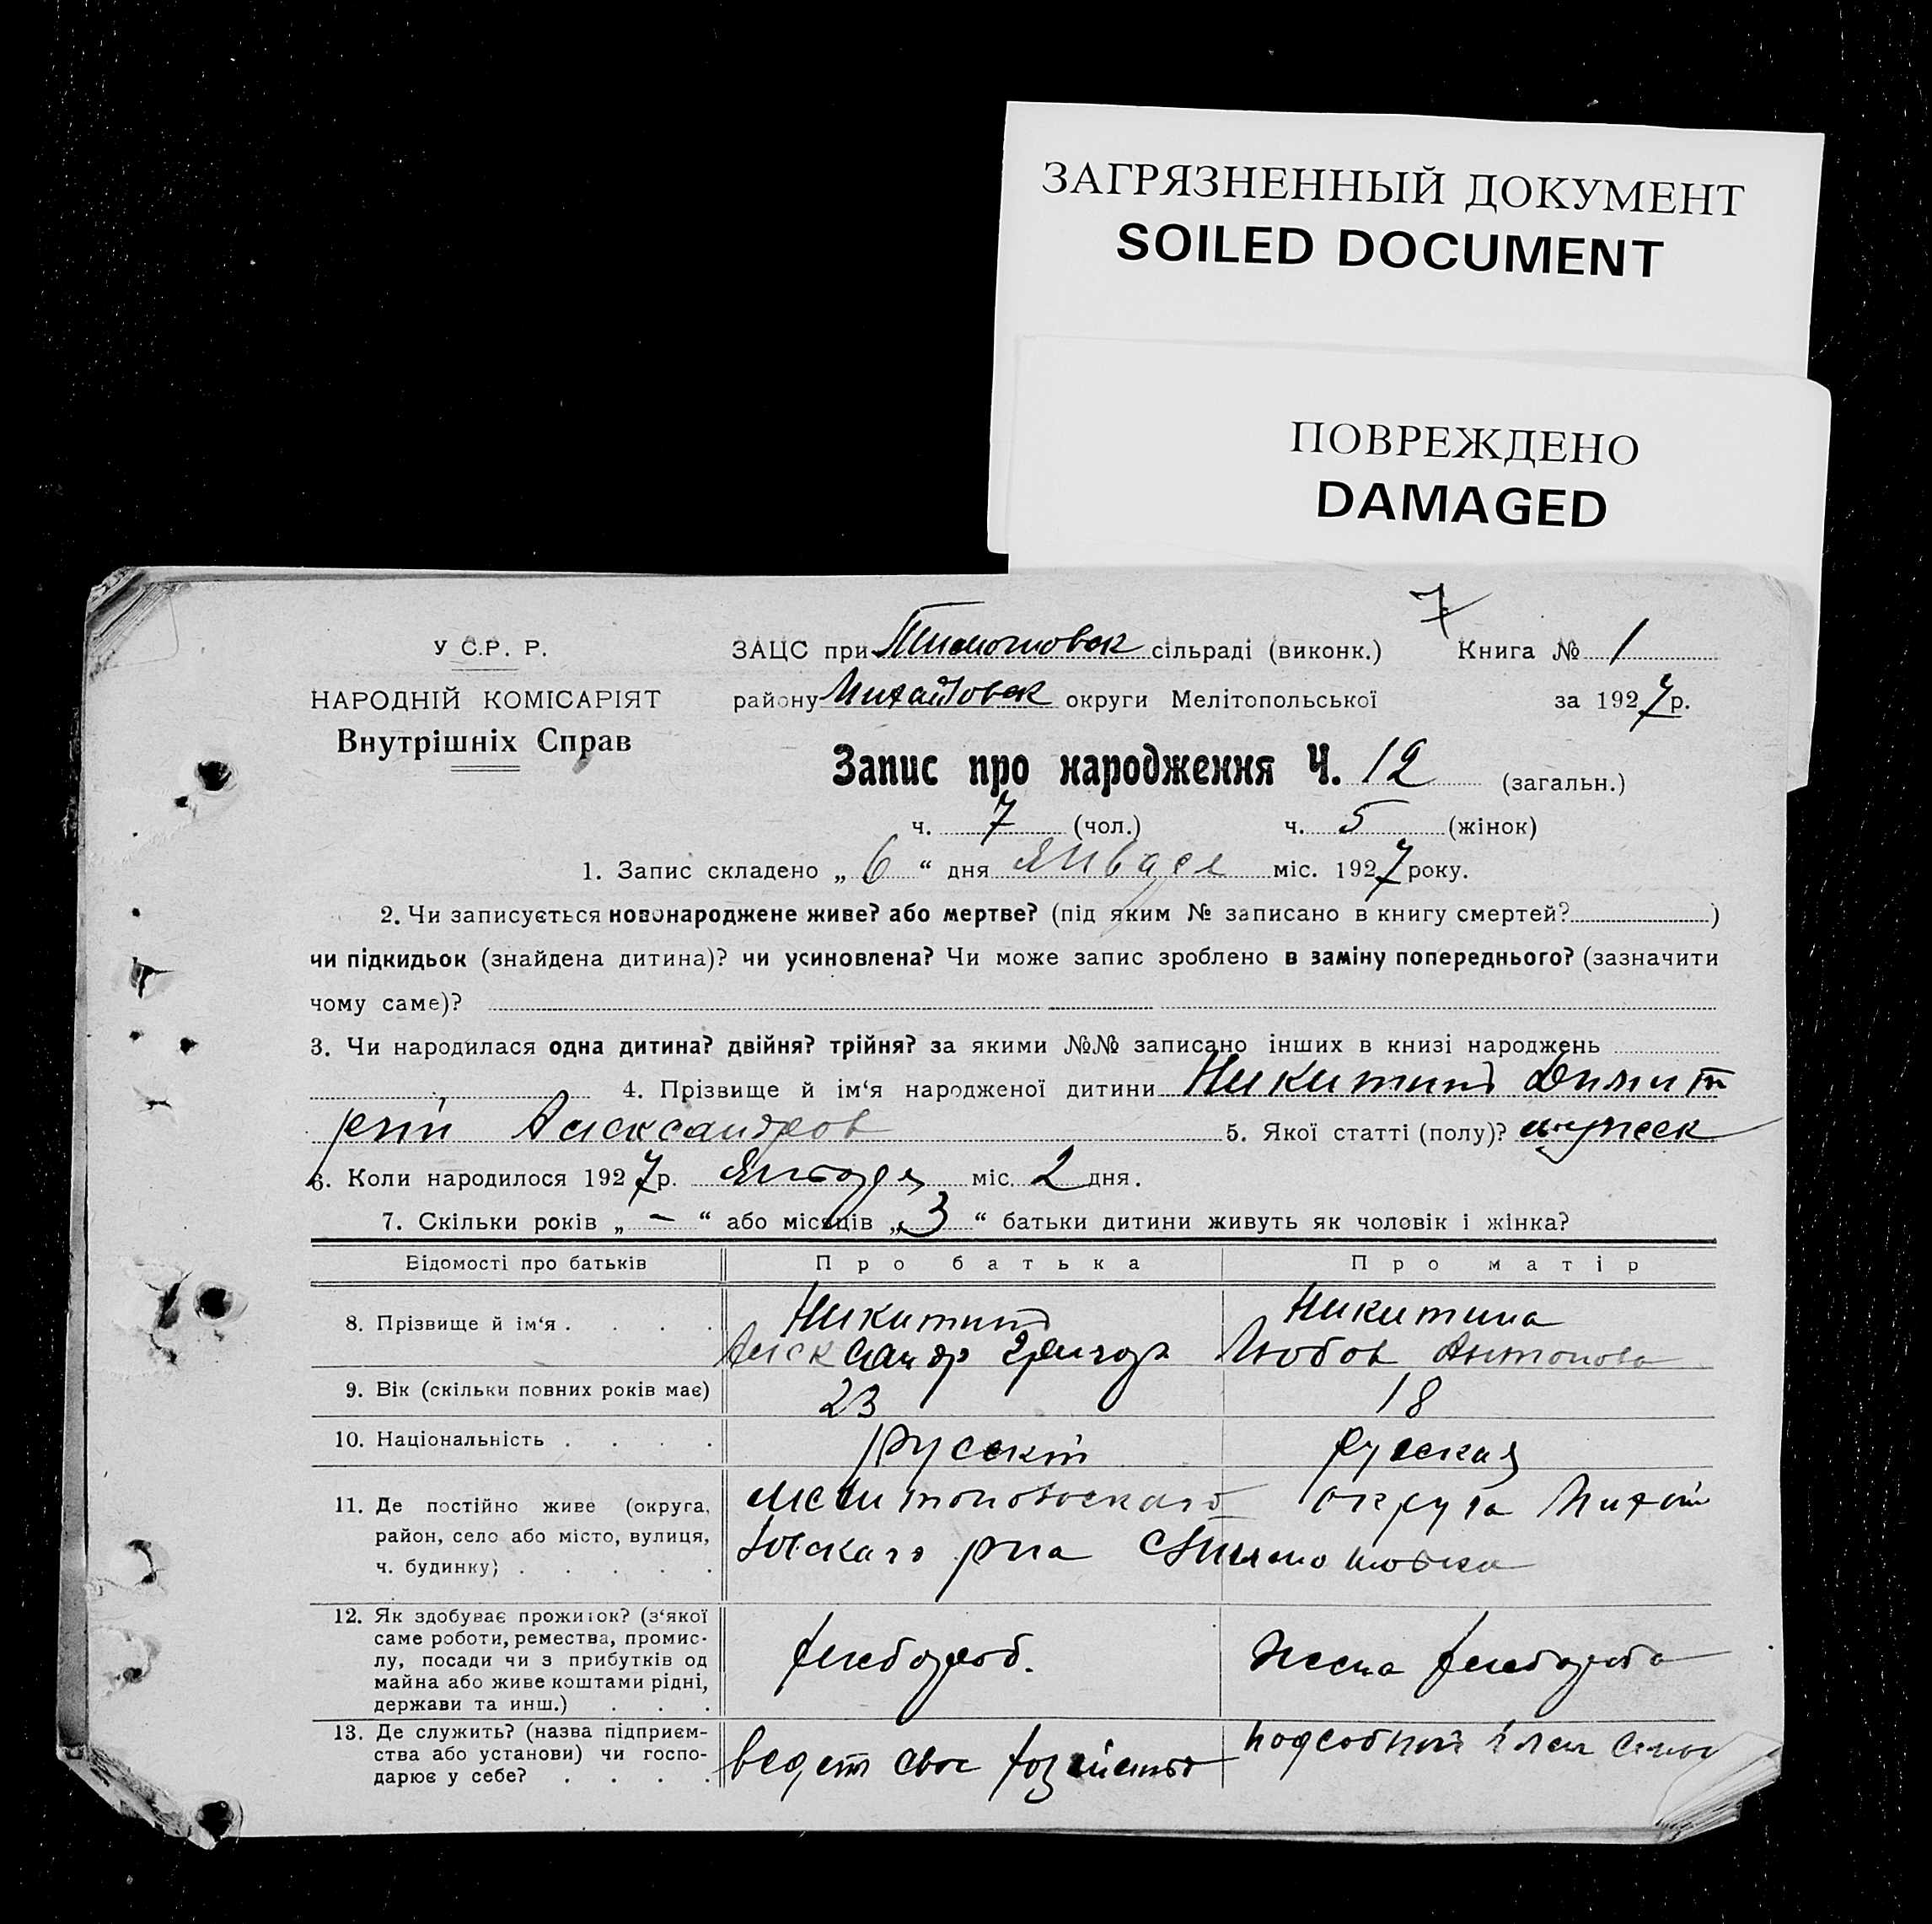 ЗАГРЯЗНЕННЫЙ ДОКУМЕНТ
SOILED DOCUMENT
ПОВРЕЖДЕНО
DAMAGED
7
У С.Р. Р.
ЗАЦС при Тимошовск сільраді (виконк.) Книга № 1
НАРОДНІЙ КОМІСАРІЯТ
району Михайловск округи Мелітопольської за 1927 р.
Внутрішніх Справ
Запис про народження Ч. 12 (загальн.)
ч. 7 (чол.) ч. 5 (жінок)
1. Запис складено „ 6 “ дня Января міс. 1927 року.
2. Чи записується новонароджене живе? або мертве? (під яким № записано в книгу смертей? )
чи підкидьок (знайдена дитина)? чи усиновлена? Чи може запис зроблено в заміну попереднього? (зазначити
чому саме)?
3. Чи народилася одна дитина? двійня? трійня? за якими №№ записано інших в книзі народжень
4. Прізвище й ім‘я народженої дитини Никитинъ Димит
рий Александров 5. Якої статті (полу)? мужеск
6. Коли народилося 1927 р. Января міс. 2 дня.
7. Скільки років „ - “ або місяців „ 3 “ батьки дитини живуть як чоловік і жінка?
Відомості про батьків Про батька Про матір
8. Прізвище й ім‘я . . . . Никитинъ Никитина
Александр Григор Любов Антонова
9. Вік (скільки повних років має) 23 18
10. Національність . . . . русскій русская
11. Де постійно живе (округа, Мелитопольскаго округа Михай
район, село або місто, вулиця, ловскаго р-на с Тимошовка
ч. будинку) . . . . .
12. Як здобуває прожиток? (з‘якої
саме роботи, ремества, промис-
лу, посади чи з прибутків од хлебороб. жена хлебороба
майна або живе коштами рідні,
держави та инш.) . . .
13. Де служить? (назва підприєм-
ства або установи) чи госпо- ведет свое хозяйство подсобный член семьи
дарює у себе? . . . .